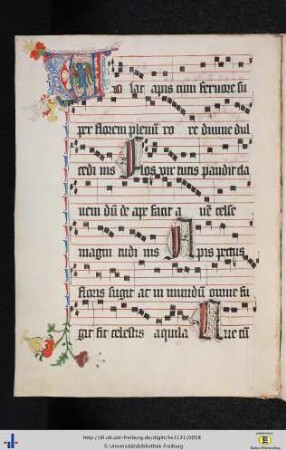 lat apis cum feruore su
per florem plenū ro re diuine dul
cedi nis flos vir tutis pandit da
uem dū de apr facit a ue celse
magni tudi nis Apis pectus
floris sugit ac in mundū omne fu
git sit celestis aquila Aue cū
http://dl.ub.uni-freiburg.de/diglit/hs1131/0058
© Universitätsbibliothek Freiburg